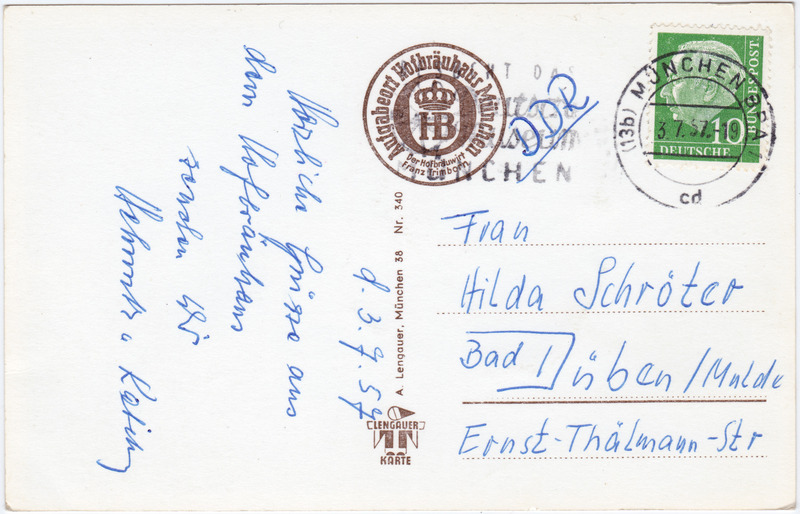 Herzliche Grüsse aus
dem Hofbräuhaus
senden Wi
Helmut u
d. 3.7.57
Aufgabeort Hofbräuhaus München
HB
Der Hofbräuwirt
Franz Trimborn
A. Lengauer, München 38 Nr. 340
LENGAUER
KARTE
DAS
MÜNCHEN
DDR
(13b) MÜNCHEN BPA
3.7.57.-19
cd
10
DEUTSCHE
BUNDESPOST
Frau
Hilda Schröter
Bad Düben/Mulde
Ernst-Thälmann-Str